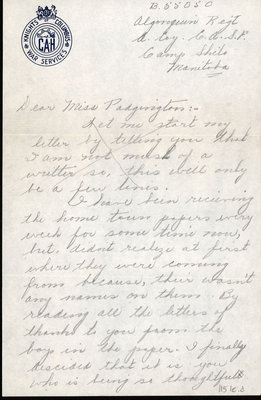 KNIGHTS OF COLUMBUS
CAH
WAR SERVICES
B.55050
Algonquin Regt
A. Coy. C.A.S.F.
Camp Shilo
Manitoba
Dear Miss Padgington:-
Let me start my
letter by telling you that
I am not much of a
writter so, this will only
be a few lines.
I have been receiving
the home town papers every
week for some time now,
but, didn't realize at first
where they were coming
from because, their wasn't
any names on them. By
reading all the letters of
thanks to you from the
boys in the paper. I finally
decided that it is you
who is being so thoughtfull